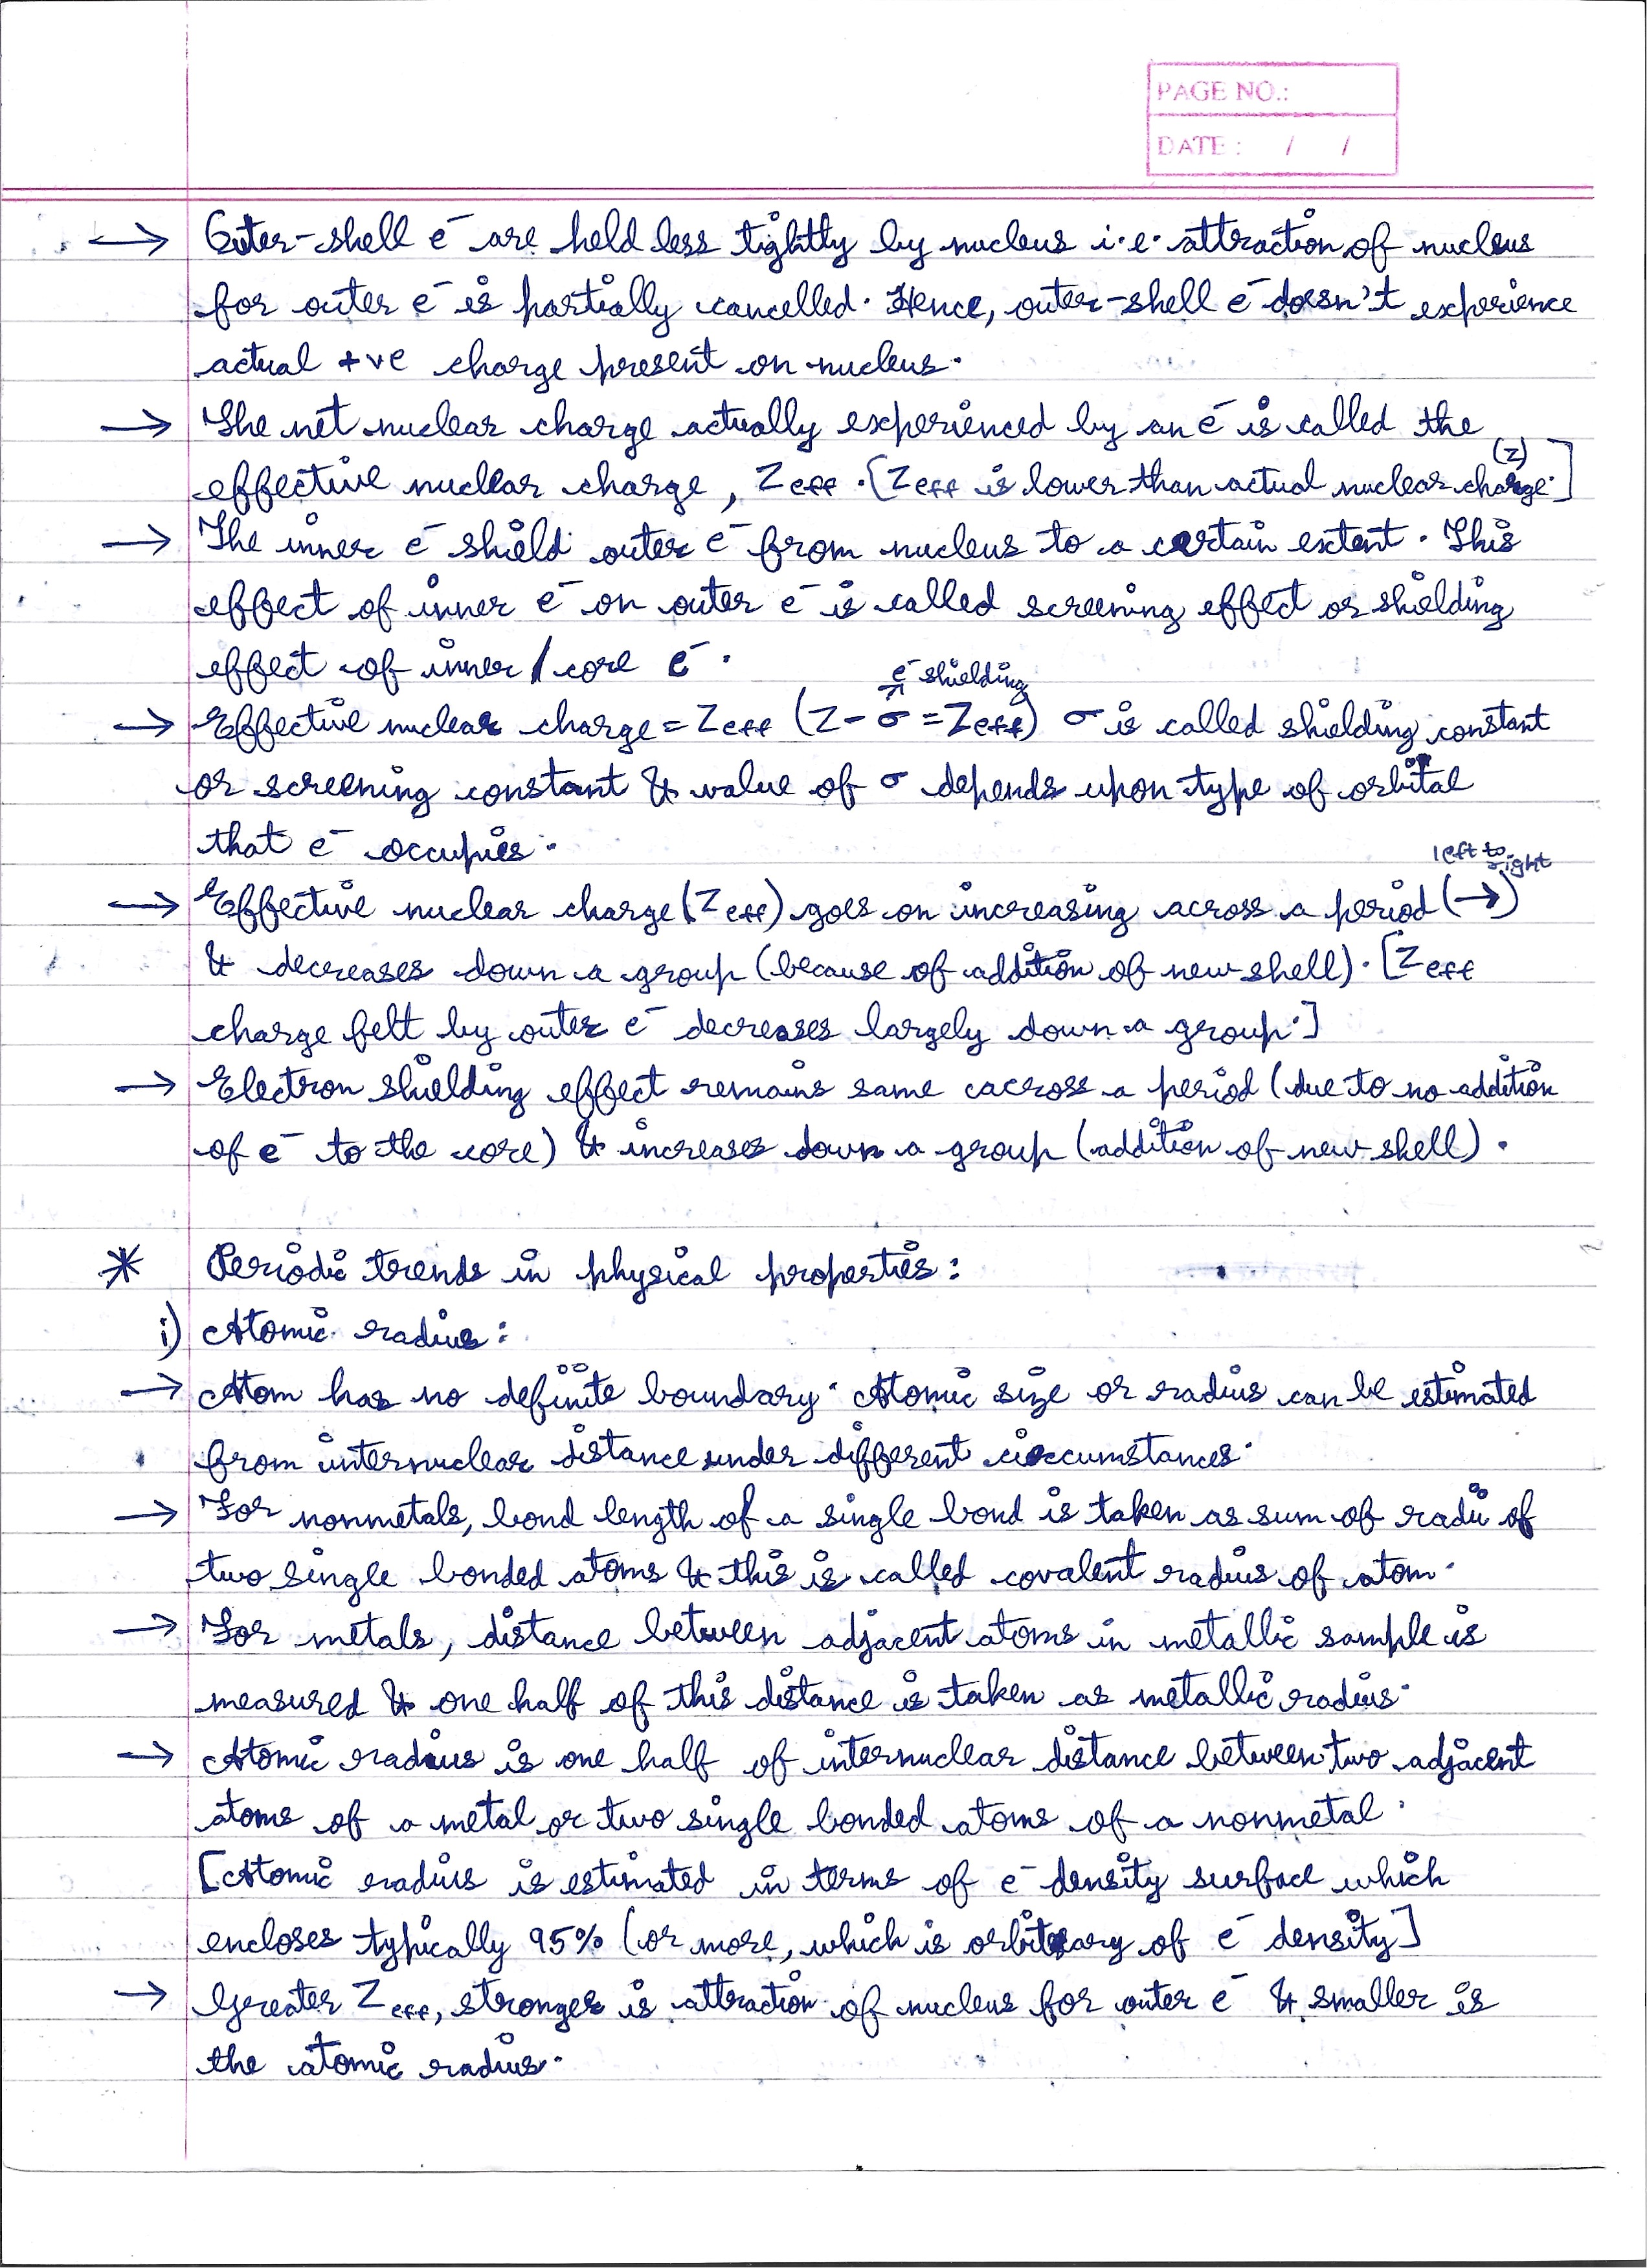 PAGE NO.:
DATE : / /
→ Outer-shell e⁻ are held less tightly by nucleus i.e. attraction of nucleus
for outer e⁻ is partially cancelled. Hence, outer-shell e⁻ doesn't experience
actual +ve charge present on nucleus.
→ The net nuclear charge actually experienced by an e⁻ is called the
(Z)
effective nuclear charge, Zeff. [Zeff is lower than actual nuclear charge.]
→ The inner e⁻ shield outer e⁻ from nucleus to a certain extent. This
effect of inner e⁻ on outer e⁻ is called screening effect or shielding
effect of inner / core e⁻.
e⁻ shielding
→ Effective nuclear charge = Zeff (Z - σ = Zeff) σ is called shielding constant
or screening constant & value of σ depends upon type of orbital
that e⁻ occupies.
left to right
→ Effective nuclear charge (Zeff) goes on increasing across a period (→)
& decreases down a group (because of addition of new shell). [Zeff
charge felt by outer e⁻ decreases largely down a group.]
→ Electron shielding effect remains same across a period (due to no addition
of e⁻ to the core) & increases down a group (addition of new shell).
* Periodic trends in physical properties:
i) Atomic radius:
→ Atom has no definite boundary. Atomic size or radius can be estimated
from internuclear distance under different circumstances.
→ For nonmetals, bond length of a single bond is taken as sum of radii of
two single bonded atoms & this is called covalent radius of atom.
→ For metals, distance between adjacent atoms in metallic sample is
measured & one half of this distance is taken as metallic radius.
→ Atomic radius is one half of internuclear distance between two adjacent
atoms of a metal or two single bonded atoms of a nonmetal.
[Atomic radius is estimated in terms of e⁻ density surface which
encloses typically 95% (or more, which is orbitrary of e⁻ density]
→ Greater Zeff, stronger is attraction of nucleus for outer e⁻ & smaller is
the atomic radius.